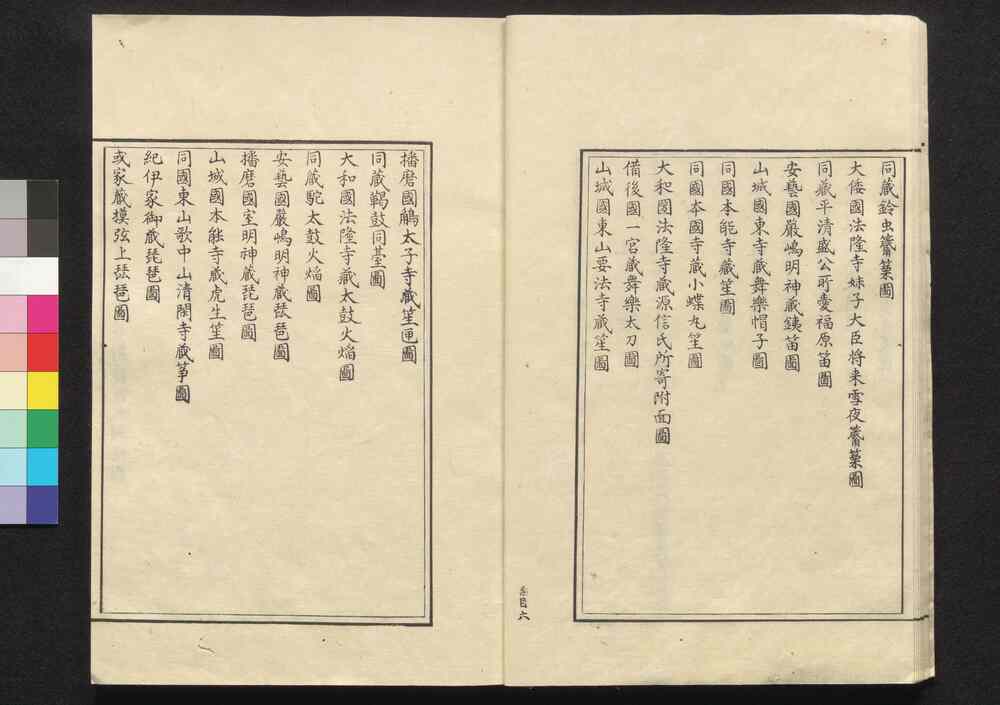 同蔵鈴虫篳篥圖
大倭國法隆寺妹子大臣将来雪夜篳篥圖
同蔵平清盛公所愛福原笛圖
安藝國嚴嶋明神蔵銕笛圖
山城國東寺蔵舞樂帽子圖
同國本能寺蔵笙圖
同國本國寺蔵小蝶丸笙圖
大和國法隆寺蔵源信氏所寄附面圖
備後國一宮蔵舞樂太刀圖
山城國東山要法寺蔵笙圖
目六
播磨國鵤太子寺蔵笙匣圖
同蔵鞨鼓同䑓圖
大和國法隆寺蔵太鼓火焔圖
同蔵駝太鼓火焔圖
安藝國嚴嶋明神蔵琵琶圖
播磨國室明神蔵琵琶圖
山城國本能寺蔵虎生笙圖
同國東山歌中山清閑寺蔵箏圖
紀伊家御蔵琵琶圖
或家蔵摸弦上琵琶圖